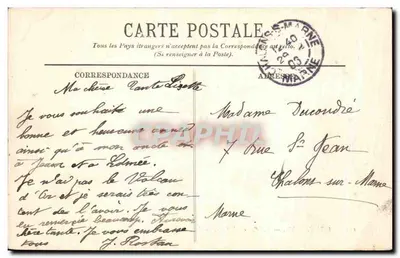 CARTE POSTALE
Tous les Pays étrangers n'acceptent pas la Correspondance au recto.
(Se renseigner à la Poste).
CORRESPONDANCE
CHALONS-S-MARNE
MARNE
Ma chère Tante Lisette
Je vous souhaite une
bonne et heureuse
ainsi qu'à mon oncle
à Jeanne et à Edmée.
Je n'ai pas le Volcan
d'Or et je serais très con
tent de l'avoir. Je vous
en remercie beaucoup.
chère tante. Je vous embrasse
tous J.
Madame Ducondré
7 Rue St Jean
Chalons-sur-Marne
Marne